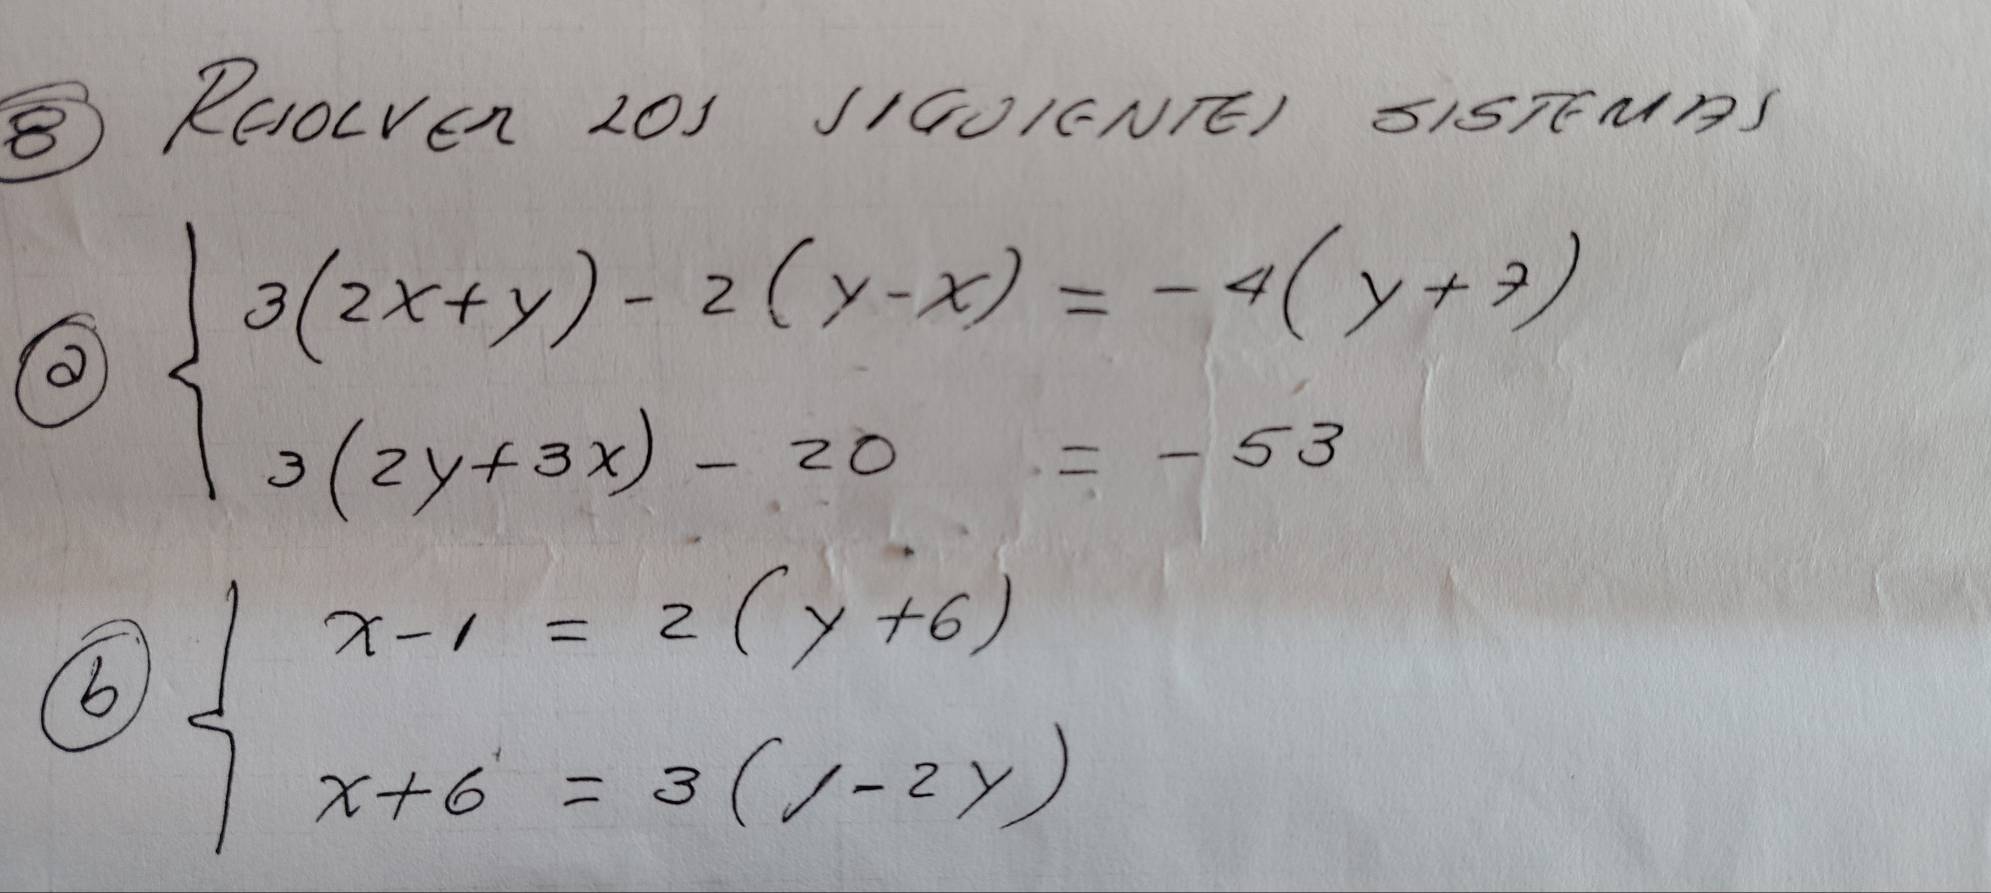 8 RESOLVER LOS SIGUIENTES SISTEMAS
a { 3(2x+y) - 2(y-x) = -4(y+7)
3(2y+3x) - 20 = -53
b { x-1 = 2(y+6)
x+6 = 3(1-2y)